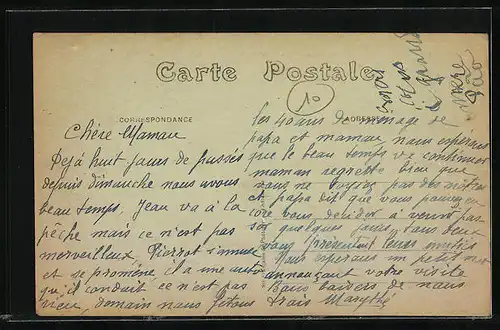 Carte Postale
10
CORRESPONDANCE
ADRESSE
Chère Maman
Déjà huit jours de passés
depuis dimanche nous avons
beau temps, Jean va à la
pêche mais ce n'est pas
merveilleux, Pierrot s'amuse
et se promène il a une auto
qu'il conduit ce n'est pas
rien, demain nous fêtons
les 40 ans de mariage de
papa et maman nous espérons
que le beau temps va continuer
maman regrette bien que
vous ne soyez pas des nôtres
et papa dit que vous pouvez en
core vous décider à venir pas
ser quelques jours, tous deux
vous présentent leurs amitiés
Nous espérons un petit mot
annonçant votre visite
Bons baisers de nous
trois Marythé